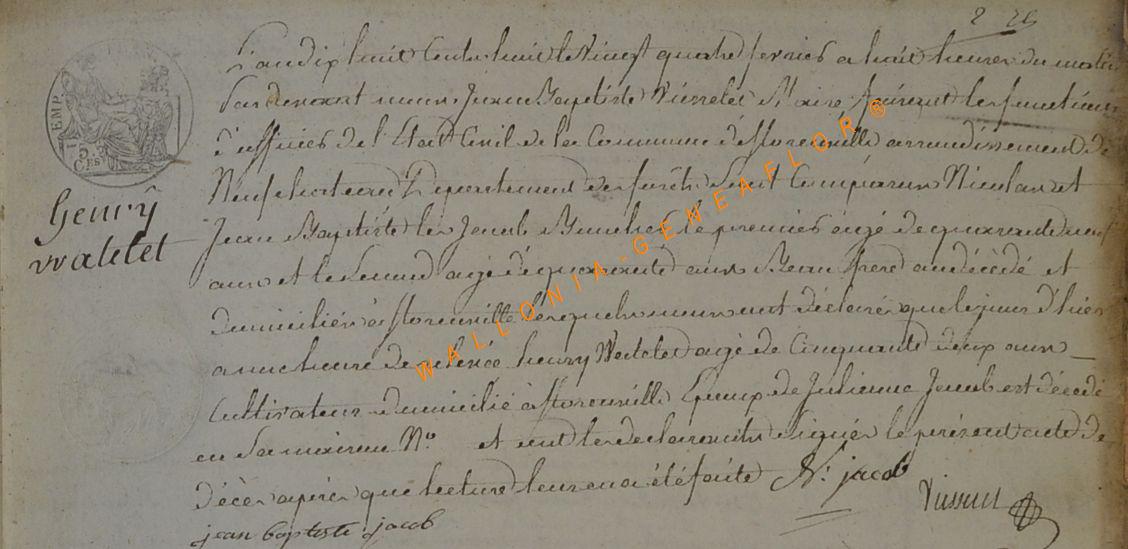 2 26
L'an dix huit Cents huit le Vingt quatre fevrier a huit heures du matin
Par devant nous Jean Baptiste Maire faisant les functions
d'officier de l'Etat Civil de la Commune d' arrondissement de
Neufchateau Departement des forêts Sont Comparus Nicolas et
Jean Baptiste les Jacob le premier agé de quarante neuf
ans et le second agé de quarante ans Beau frere au décédé et
domiciliés a lesquels nous ont déclaré que le jour d'hier
a une heure de henry Watelet agé de Cinquante deux ans
Cultivateur domicilié a Epoux de Julienne Jacob est décédé
en Sa maison N° et ont les déclarants signés le présent acte de
décès après que lecture leur en a été faite N: jacob
jean baptiste jacob
EMP. FRAN
5
Ces
henrÿ
watelet
WALLONIA-GENEAFLOR®